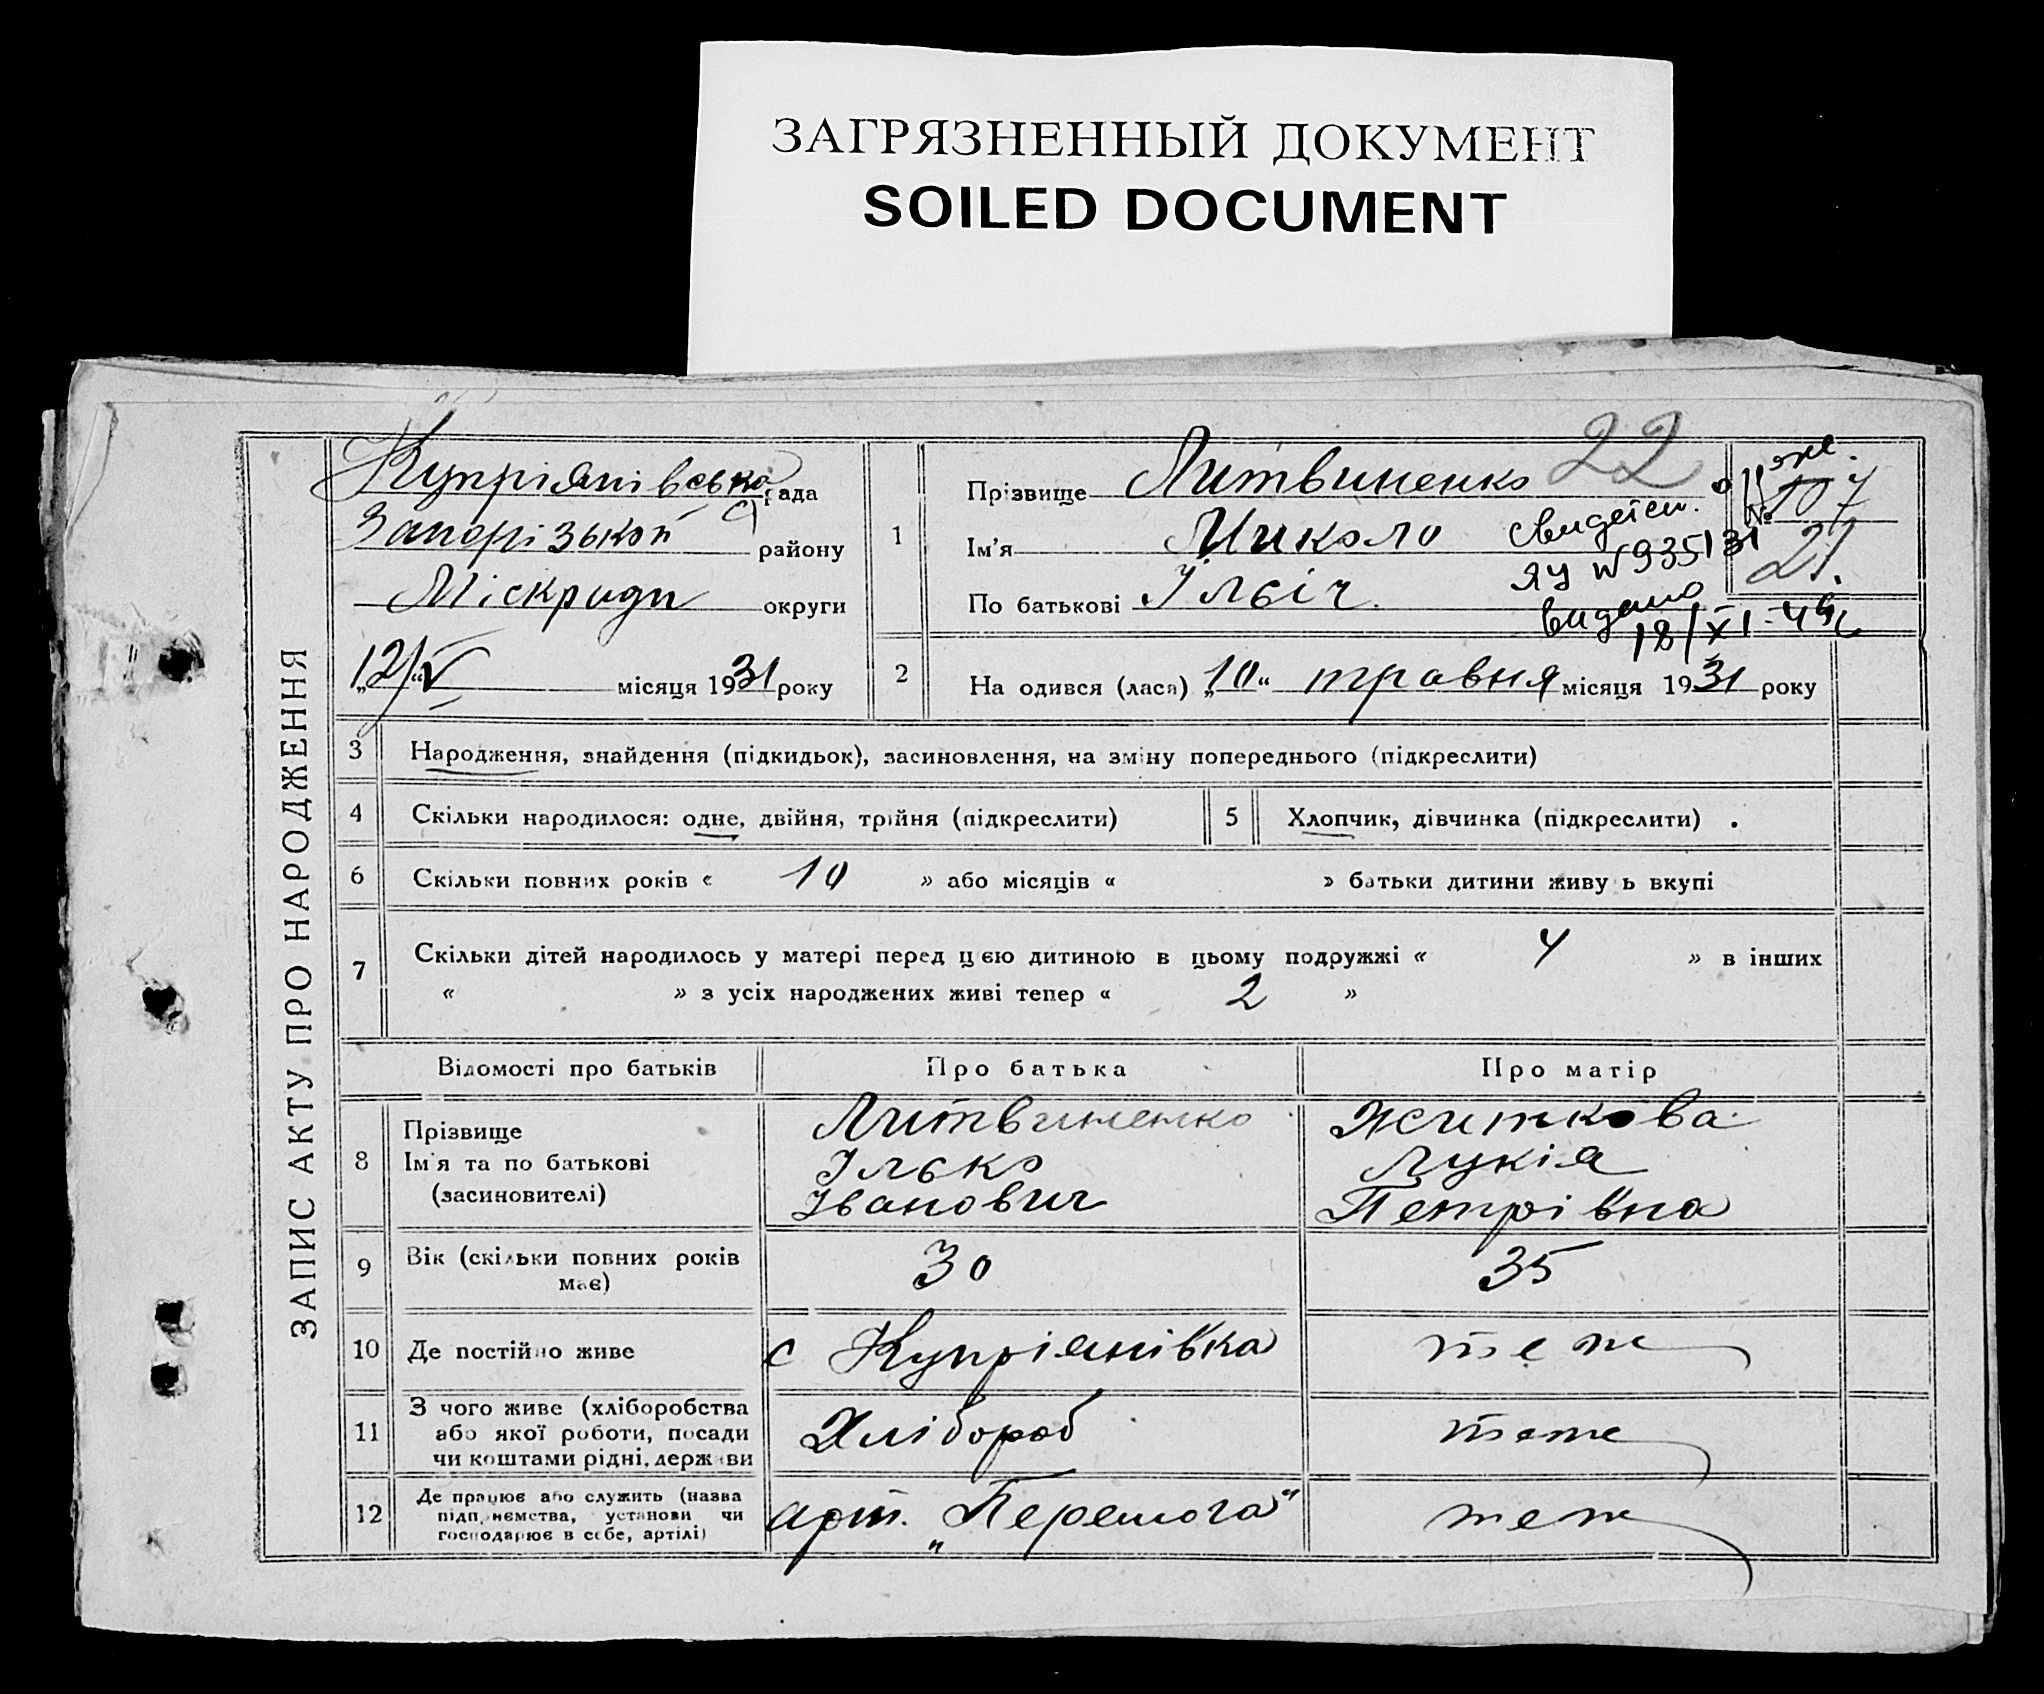 ЗАГРЯЗНЕННЫЙ ДОКУМЕНТ
SOILED DOCUMENT
ЗАПИС АКТУ ПРО НАРОДЖЕННЯ
Купріянівська рада
Запорізькой району
Міскради округи
„12/V“ місяця 1931 року
1
Прізвище Литвиненко 22
Ім'я Миколо
По батькові Ільіч
свидетел.
ЯУ № 935131
видано
18/XI-49
№ 107
21.
2 На одився (лася) „10“ травня місяця 1931 року
3 Народження, знайдення (підкидьок), засиновлення, на зміну попереднього (підкреслити)
4 Скільки народилося: одне, двійня, трійня (підкреслити) 5 Хлопчик, дівчинка (підкреслити)
6 Скільки повних років « 10 » або місяців « » батьки дитини живу ь вкупі
7 Скільки дітей народилось у матері перед цією дитиною в цьому подружжі « 4 » в інших
« » з усіх народжених живі тепер « 2 »
Відомості про батьків Про батька Про матір
8 Прізвище Литвиненко Житкова
Ім'я та по батькові Ілько Лукія
(засиновителі) Іванович Петрівна
9 Вік (скільки повних років має) 30 35
10 Де постійно живе с Купріянівка теж
11 З чого живе (хліборобства
або якої роботи, посади Хлібороб тоже
чи коштами рідні, держави
12 Де працює або служить (назва
підприємства, установи чи арт. „Перемога“ теж
господарює в себе, артілі)